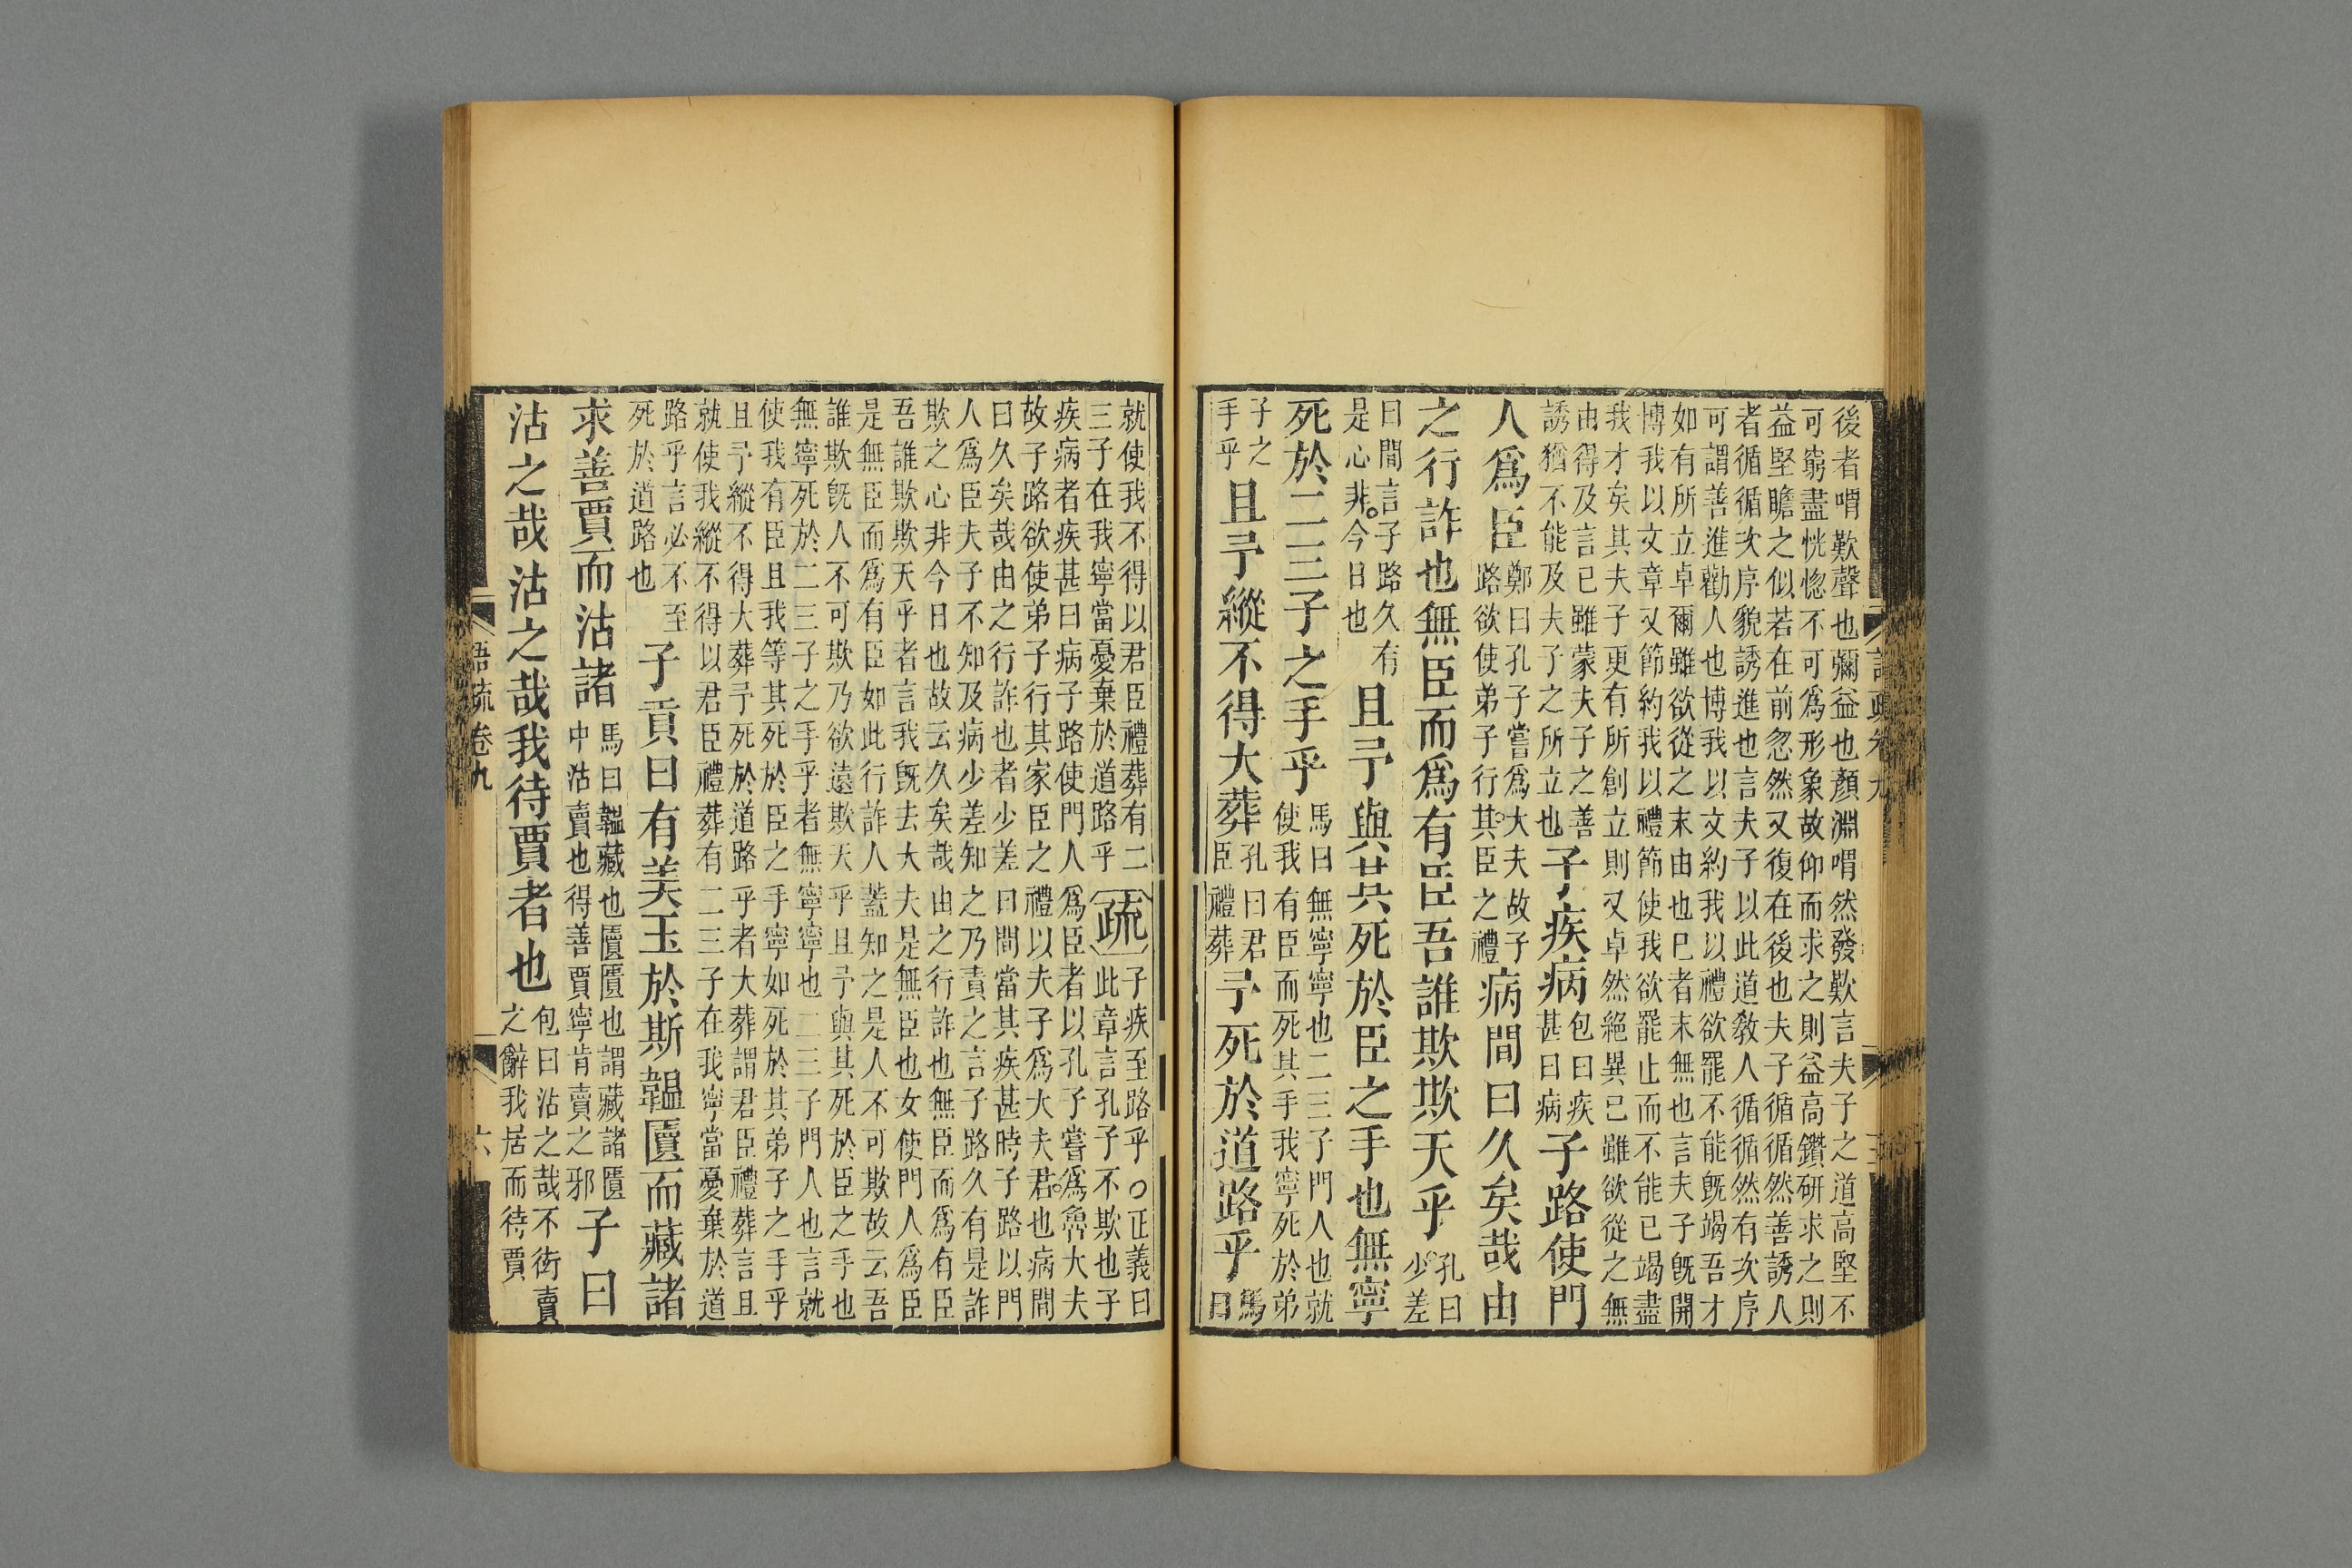 後者喟歎聲也彌益也顏淵喟然發歎言夫子之道高堅不
可窮盡恍惚不可爲形象故仰而求之則益高鑽研求之則
益堅瞻之似若在前忽然又復在後也夫子循循然善誘人
者循循次序貌誘進也言夫子以此道敎人循循然有次序
可謂善進勸人也博我以文約我以禮欲罷不能旣竭吾才
如有所立卓爾雖欲從之末由也已者末無也言夫子旣開
博我以文章又節約我以禮節使我欲罷止而不能已竭盡
我才矣其夫子更有所創立則又卓然絕異已雖欲從之無
由得及言已雖蒙夫子之善
誘猶不能及夫子之所立也
子疾病
包曰疾
甚曰病
子路使門
人爲臣
鄭曰孔子嘗爲大夫故子
路欲使弟子行其臣之禮
病間曰久矣哉由
之行詐也無臣而爲有臣吾誰欺欺天乎
孔曰
少差
曰間言子路久有
是心非今日也
且予與其死於臣之手也無寧
死於二三子之手乎
馬曰無寧寧也二三子門人也就
使我有臣而死其手我寧死於弟
子之
手乎
且予縱不得大葬
孔曰君
臣禮葬
予死於道路乎
馬
曰
就使我不得以君臣禮葬有二
三子在我寧當憂棄於道路乎
疏
子疾至路乎○正義曰
此章言孔子不欺也子
疾病者疾甚曰病子路使門人爲臣者以孔子嘗爲魯大夫
故子路欲使弟子行其家臣之禮以夫子爲大夫君也病間
曰久矣哉由之行詐也者少差曰間當其疾甚時子路以門
人爲臣夫子不知及病少差知之乃責之言子路久有是詐
欺之心非今日也故云久矣哉由之行詐也無臣而爲有臣
吾誰欺欺天乎者言我旣去大夫是無臣也女使門人爲臣
是無臣而爲有臣如此行詐人蓋知之是人不可欺故云吾
誰欺旣人不可欺乃欲遠欺天乎且予與其死於臣之手也
無寧死於二三子之手乎者無寧寧也二三子門人也言就
使我有臣且我等其死於臣之手寧如死於其弟子之手乎
且予縱不得大葬予死於道路乎者大葬謂君臣禮葬言且
就使我縱不得以君臣禮葬有二三子在我寧當憂棄於道
路乎言必不至
死於道路也
子貢曰有美玉於斯韞匵而藏諸
求善賈而沽諸
馬曰韞藏也匵匵也謂藏諸匵
中沽賣也得善賈寧肯賣之邪
子曰
沽之哉沽之哉我待賈者也
包曰沽之哉不衒賣
之辭我居而待賈
語疏卷九
六